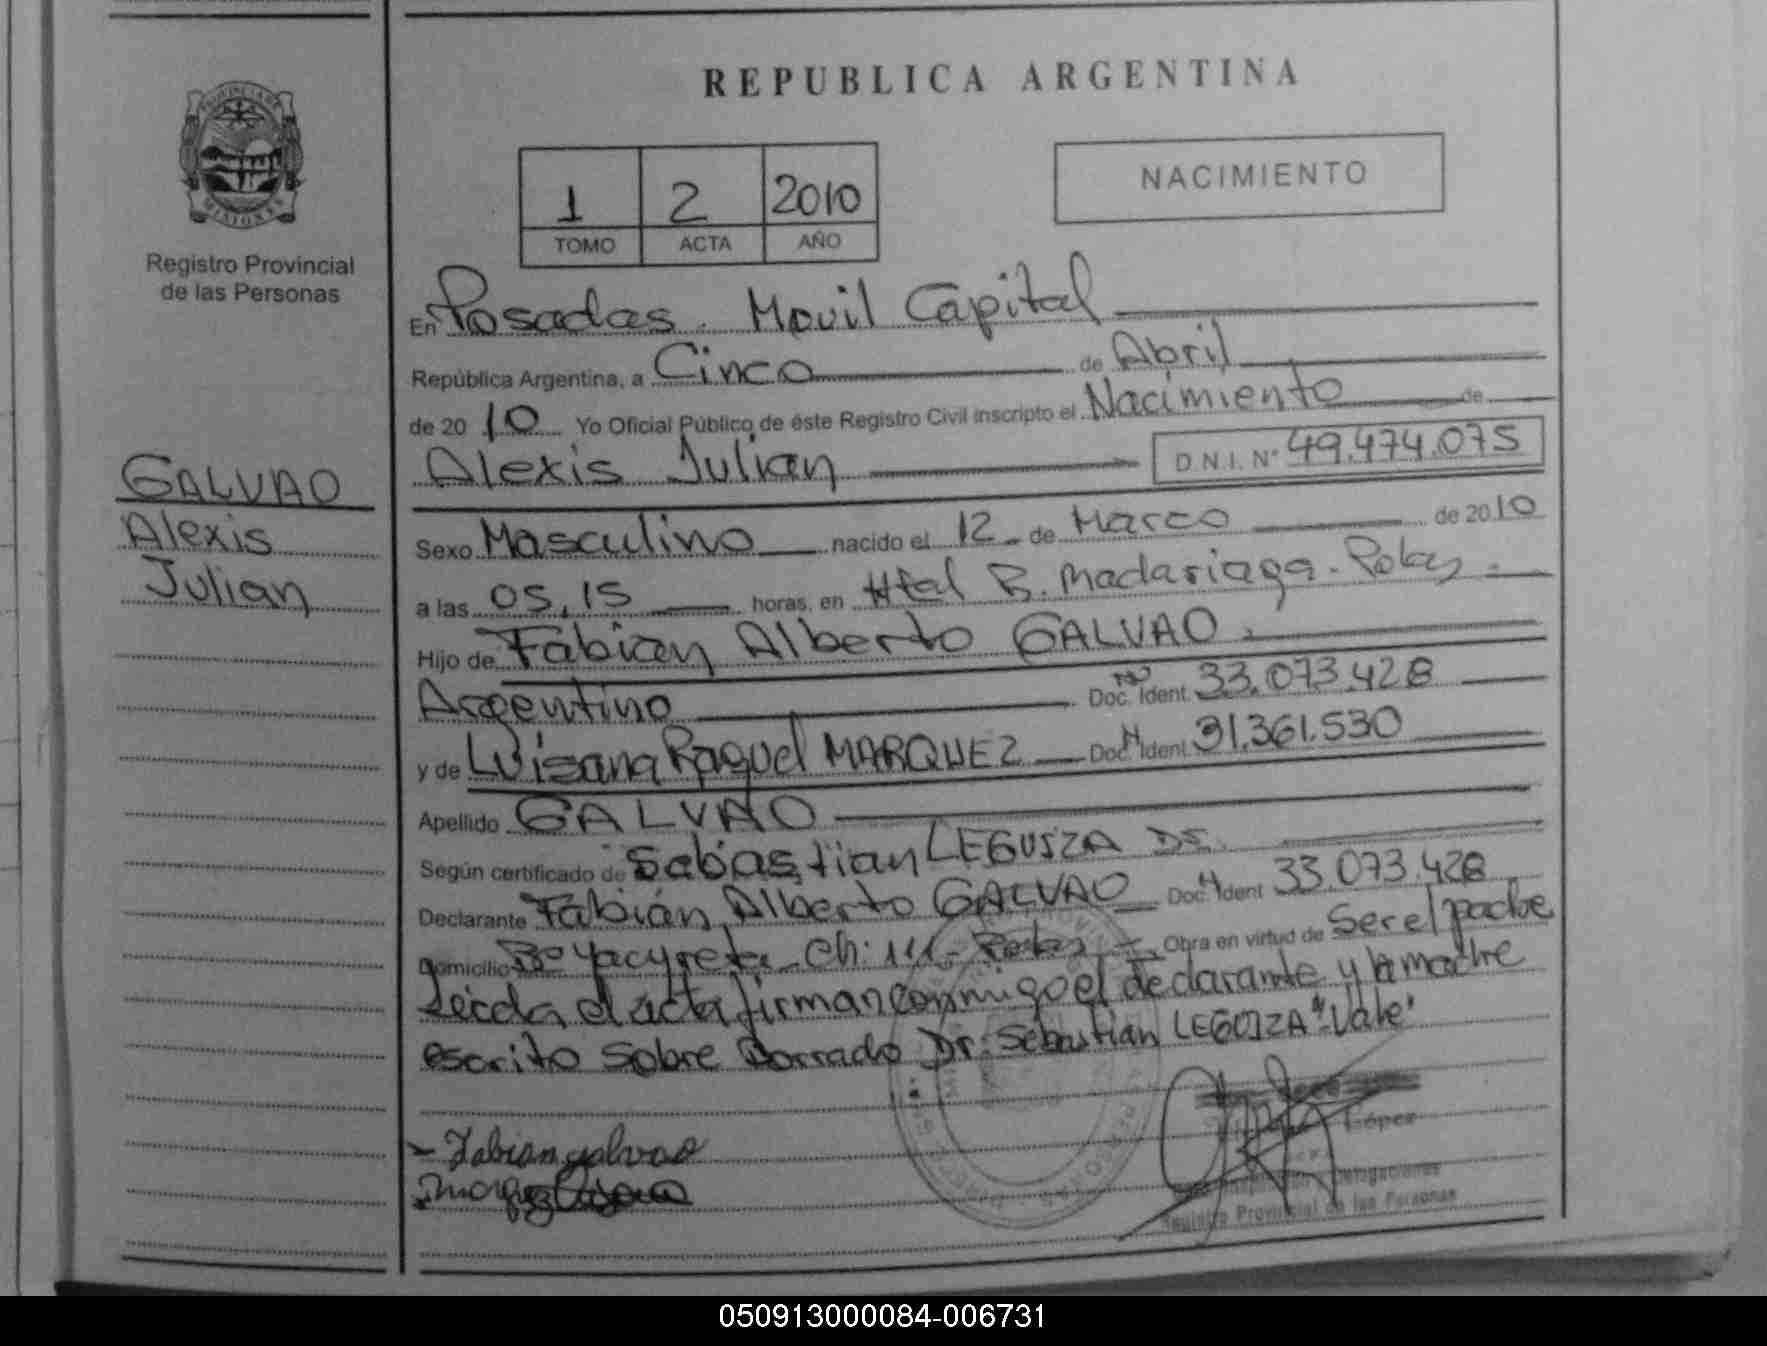 REPUBLICA ARGENTINA
PROVINCIA DE
MISIONES
Registro Provincial
de las Personas
1 2 2010
TOMO ACTA AÑO
NACIMIENTO
GALVAO
Alexis
Julian
En Posadas. Movil Capital
República Argentina, a Cinco de Abril
de 2010 Yo Oficial Público de éste Registro Civil inscripto el Nacimiento de
Alexis Julian D.N.I. N° 49.474.075
Sexo Masculino nacido el 12 de Marzo de 2010
a las 05,15 horas, en Htal R. Madariaga - Pdas
Hijo de Fabian Alberto GALVAO
Argentino Doc. Ident. 33.073.428
y de Luisana Raquel MARQUEZ Doc. Ident. 31.361.530
Apellido GALVAO
Según certificado de Sebastian LEGUIZA DS.
Declarante Fabián Alberto GALVAO Doc. Ident 33.073.428
Domicilio B° Yacyreta - Ch: 111 - Pdas - Obra en virtud de Ser el padre
Leida el acta firman conmigo el declarante y la madre
escrito sobre borrado Dr: Sebastian LEGUIZA "Vale"
Fabian galvao
López
Delegaciones
Registro Provincial de las Personas
050913000084-006731